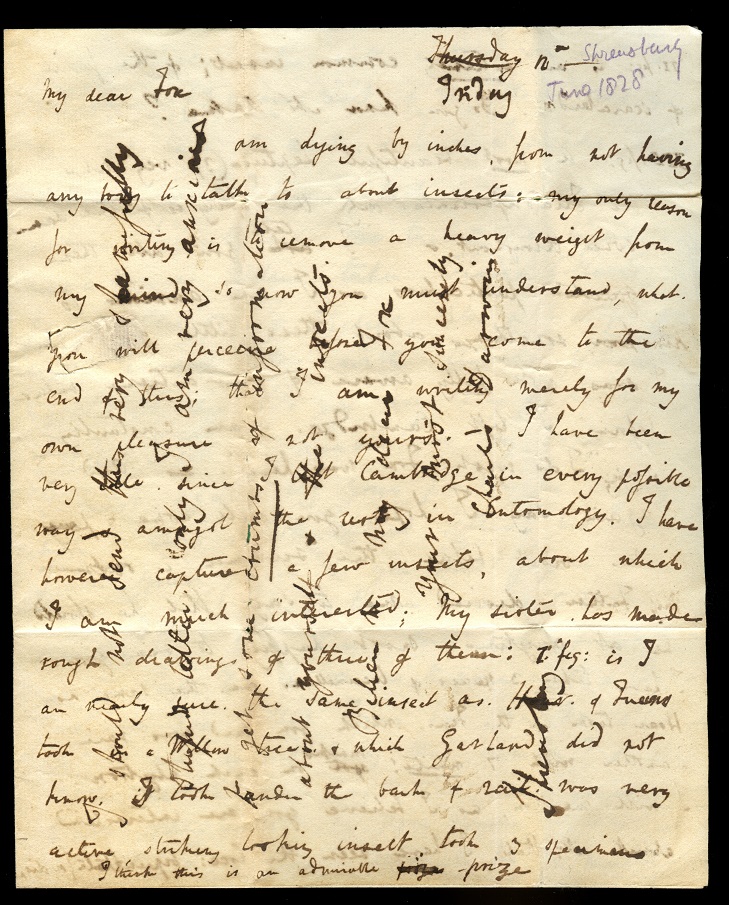 Thursday 12th — Shrewsbury
Friday June 1828
My dear Fox
am dying by inches from not having
any body to talk to about insects: my only reason
for writing is to remove a heavy weight from
my mind so now you must understand, what.
you will perceive before you come to the
end of this; that I am writing merely for my
own pleasure & not yours. I have been
very idle since I left Cambridge in every possible
way & amongst the rest in Entomology. I have
however captured a few insects, about which
I am much interested; My sister has made
rough drawings of three of them: I fig: is I
am nearly sure the same insect as Hoar. of Queens
took in a Willow tree. & which Garland did not
know. I took under the bark of was very
active striking looking insect took 3 specimens
I think this is an admirable prize
I should not send this very shamefully
stupid letter only I am very anxious
to get some crumbs of information
about yourself & the insects.
Believe me My dear Fox
Yours most sincerely
Charles Darwin
Shrewsbury